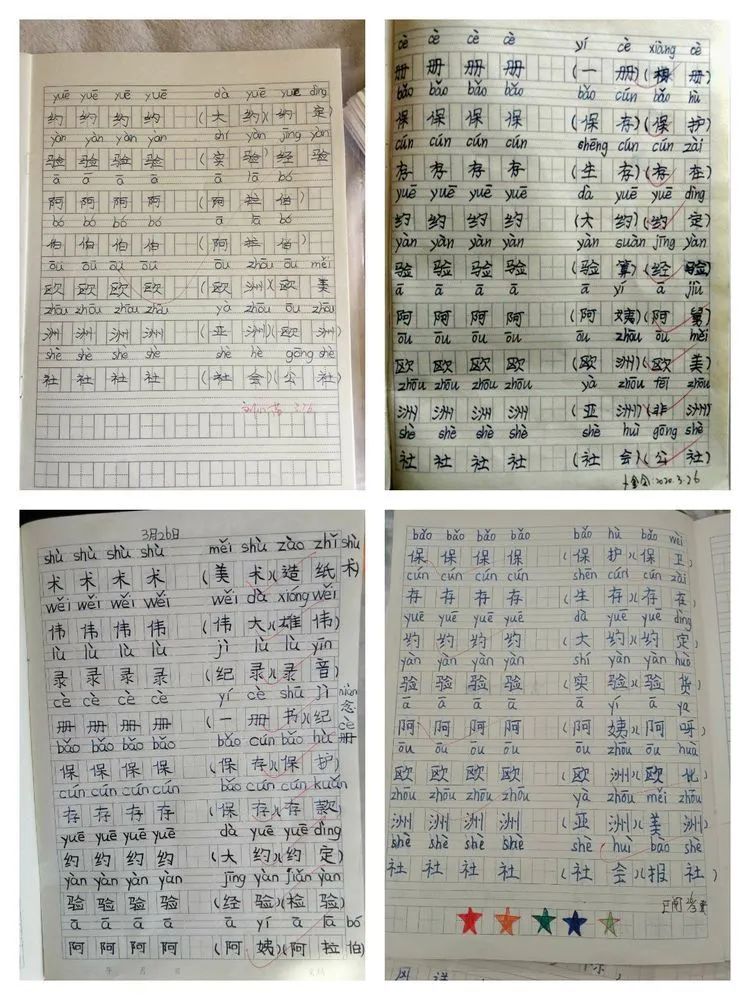 yuē yuē yuē yuē dà yuē yuē dìng
约 约 约 约 (大 约)(约 定)
yàn yàn yàn yàn shí yàn jīng yàn
验 验 验 验 (实 验)(经 验)
ā ā ā ā ā lā bó
阿 阿 阿 阿 (阿 拉 伯)
bó bó bó bó ā lā bó
伯 伯 伯 伯 (阿 拉 伯)
ōu ōu ōu ōu ōu zhōu ōu měi
欧 欧 欧 欧 (欧 洲)(欧 美
zhōu zhōu zhōu zhōu yà zhōu ōu zhōu
洲 洲 洲 洲 (亚 洲)(欧 洲)
shè shè she shè shè hè gōng shè
社 社 社 社 (社 会)(公 社)
3.26
cè cè cè cè yí cè xiàng cè
册 册 册 册 (一 册)(相 册
bǎo bǎo bǎo bǎo bǎo cún bǎo hù
保 保 保 保 (保 存)(保 护
cún cún cún cún shēng cún cún zài
存 存 存 存 (生 存)(存 在
yuē yuē yuē yuē dà yuē yuē dìng
约 约 约 约 (大 约)(约 定
yàn yàn yàn yàn yàn suàn jīng yàn
验 验 验 验 (验 算)(经 验
ā ā ā ā ā yí ā jiù
阿 阿 阿 阿 (阿 姨)(阿 舅
ōu ōu ōu ōu ōu zhōu ōu měi
欧 欧 欧 欧 (欧 洲)(欧 美)
zhōu zhōu zhōu zhōu yà zhōu fēi zhōu
洲 洲 洲 洲 (亚 洲)(非 洲)
shè shè shè shè shè huì gōng shè
社 社 社 社 (社 会)(公 社)
2020.3.26
3月26日
shù shù shù shù měi shù zào zhǐ shù
术 术 术 术 (美 术)(造 纸 术)
wěi wěi wěi wěi wěi dà xióng wěi
伟 伟 伟 伟 (伟 大)(雄 伟)
lù lù lù lù jì lù lù yīn
录 录 录 录 (纪 录)(录 音)
cè cè cè cè yí cè shū jì niàn cè
册 册 册 册 (一 册 书)(纪 念 册
bǎo bǎo bǎo bǎo bǎo cún bǎo hù
保 保 保 保 (保 存)(保 护)
cún cún cún cún bǎo cún cún kuǎn
存 存 存 存 (保 存)(存 款)
yuē yuē yuē yuē dà yuē yuē dìng
约 约 约 约 (大 约)(约 定)
yàn yàn yàn yàn jīng yàn jiǎn yàn
验 验 验 验 (经 验)(检 验)
ā ā ā ā ā yí ā lā bó
阿 阿 阿 阿 (阿 姨)(阿 拉 伯)
年 月 日
bǎo bǎo bǎo bǎo bǎo hù bǎo wèi
保 保 保 保 (保 护)(保 卫
cún cún cún cún shēn cún cún zài
存 存 存 存 (生 存)(存 在)
yuē yuē yuē yuē dà yuē yuē dìng
约 约 约 约 (大 约)(约 定)
yàn yàn yàn yàn shí yàn yàn huò
验 验 验 验 (实 验)(验 货)
ā ā ā ā ā yí a ya
阿 阿 阿 阿 (阿 姨)(阿 呀)
ōu ōu ōu ōu ōu zhōu ōu huà
欧 欧 欧 欧 (欧 洲)(欧 化
zhōu zhōu zhōu zhōu yà zhōu měi zhōu
洲 洲 洲 洲 (亚 洲)(美 洲)
shè shè shè shè shè huì bào shè
社 社 社 社 (社 会)(报 社)